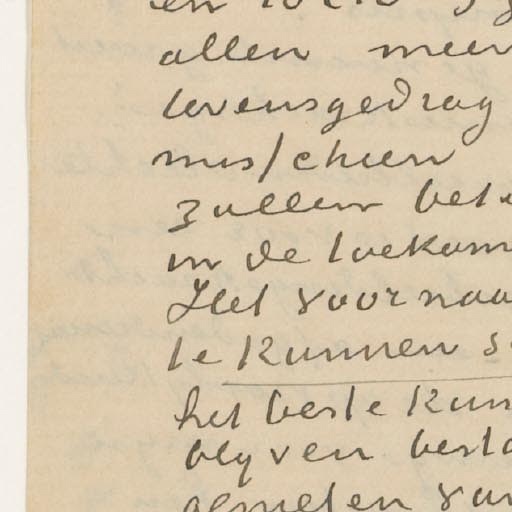 en
allen meer
levensgedrag
misschien
zullen bet
in de toekom
Het voornaa
te kunnen s
het beste kun
blyven besta
genieten van